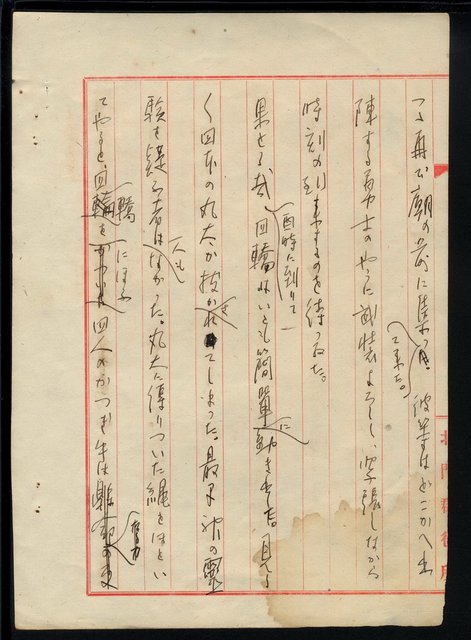 つゝ再び廟の前に集つ
て来た。
彼等はどこかへ出
陣する勇士のやうに武装よろしく、緊張しながら
時刻の到来するのを待つた。
果せる哉、
酉時に到りて
回轎はいとも簡單に動き出した。見る
く四本の丸太が抜かれてしまつた。最早神の靈
験を疑ふ者は
人も
なかつた。丸太に縛りついた縄をほどい
てやると、回
轎
四人のかつぎ手は